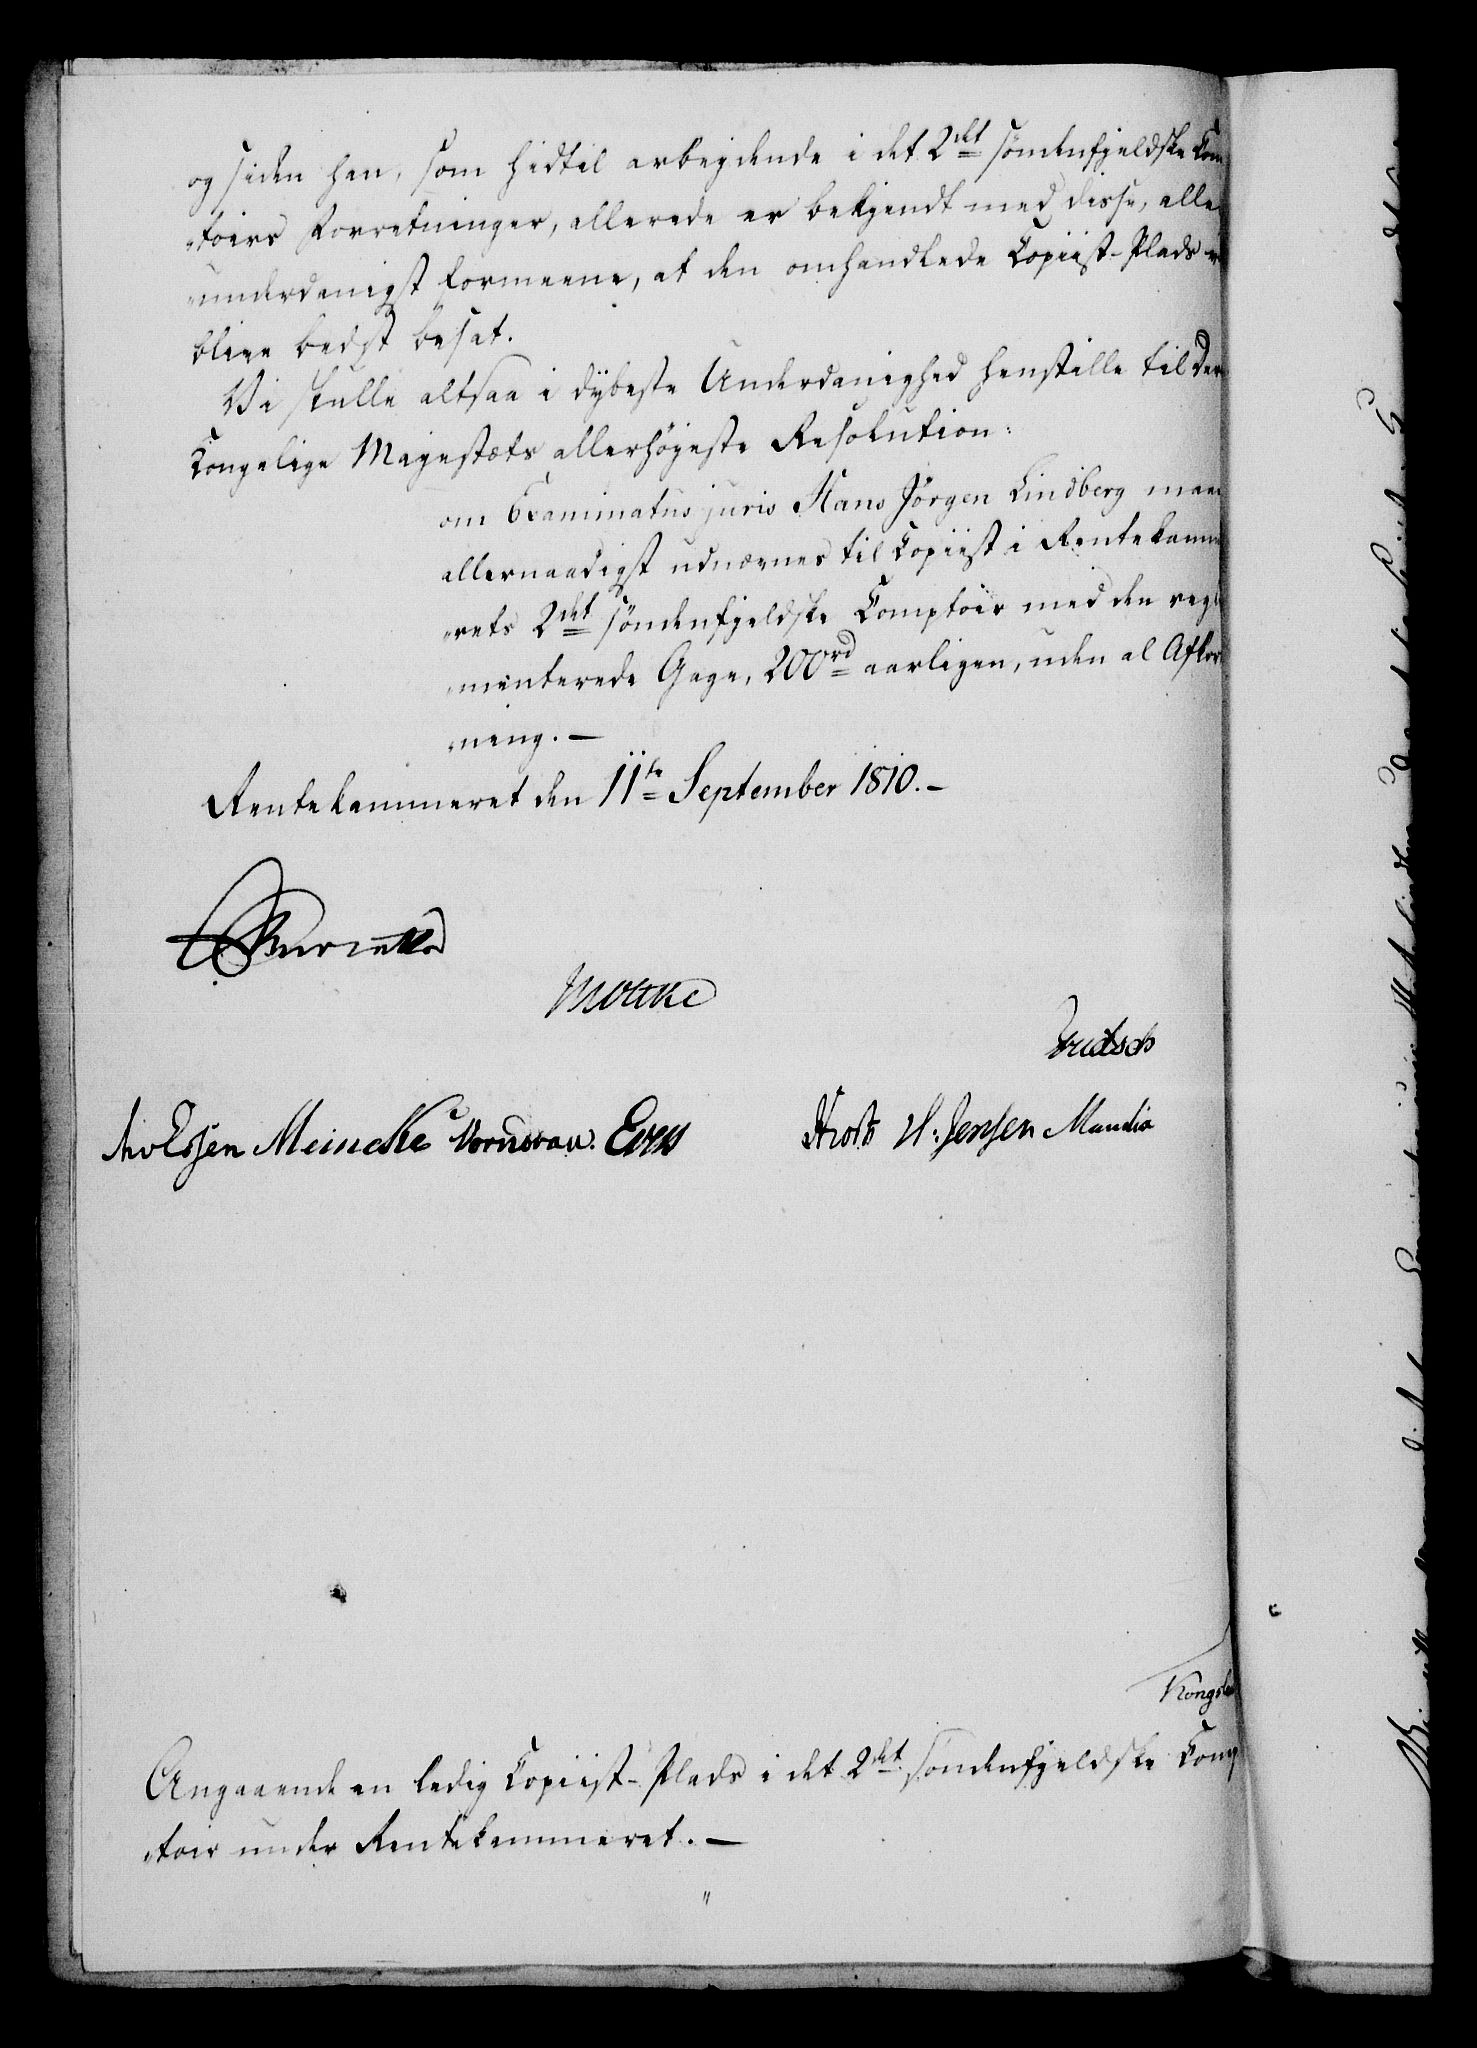 og siden han, som hidtil arbejdende i det 2det söndenfjeldske Com
toirs Forretninger, allerede er bekjendt med disse, aller
underdanigst formeene, at den omhandlede Copiist-Plads
blive bedst besat.
Vi skulle altsaa i dybeste Underdanighed henstille til Der
Kongelige Majestæts allerhöjeste Resolution:
om Examinatus juris Hans Jörgen Lindberg maa
allernaadigst udnævnes til Copiist i Rentekamme
rets 2det söndenfjeldske Comptoir med den regle
menterede Gage, 200rd aarligen, uden al Afkor
ning. —
Rentekammeret den 11te September 1810. —
Moltke
Meincke Wormskiold
H: Jensen
Angaaende en ledig Copiist-Plads i det 2det söndenfjeldske Comp
toir under Rentekammeret. —